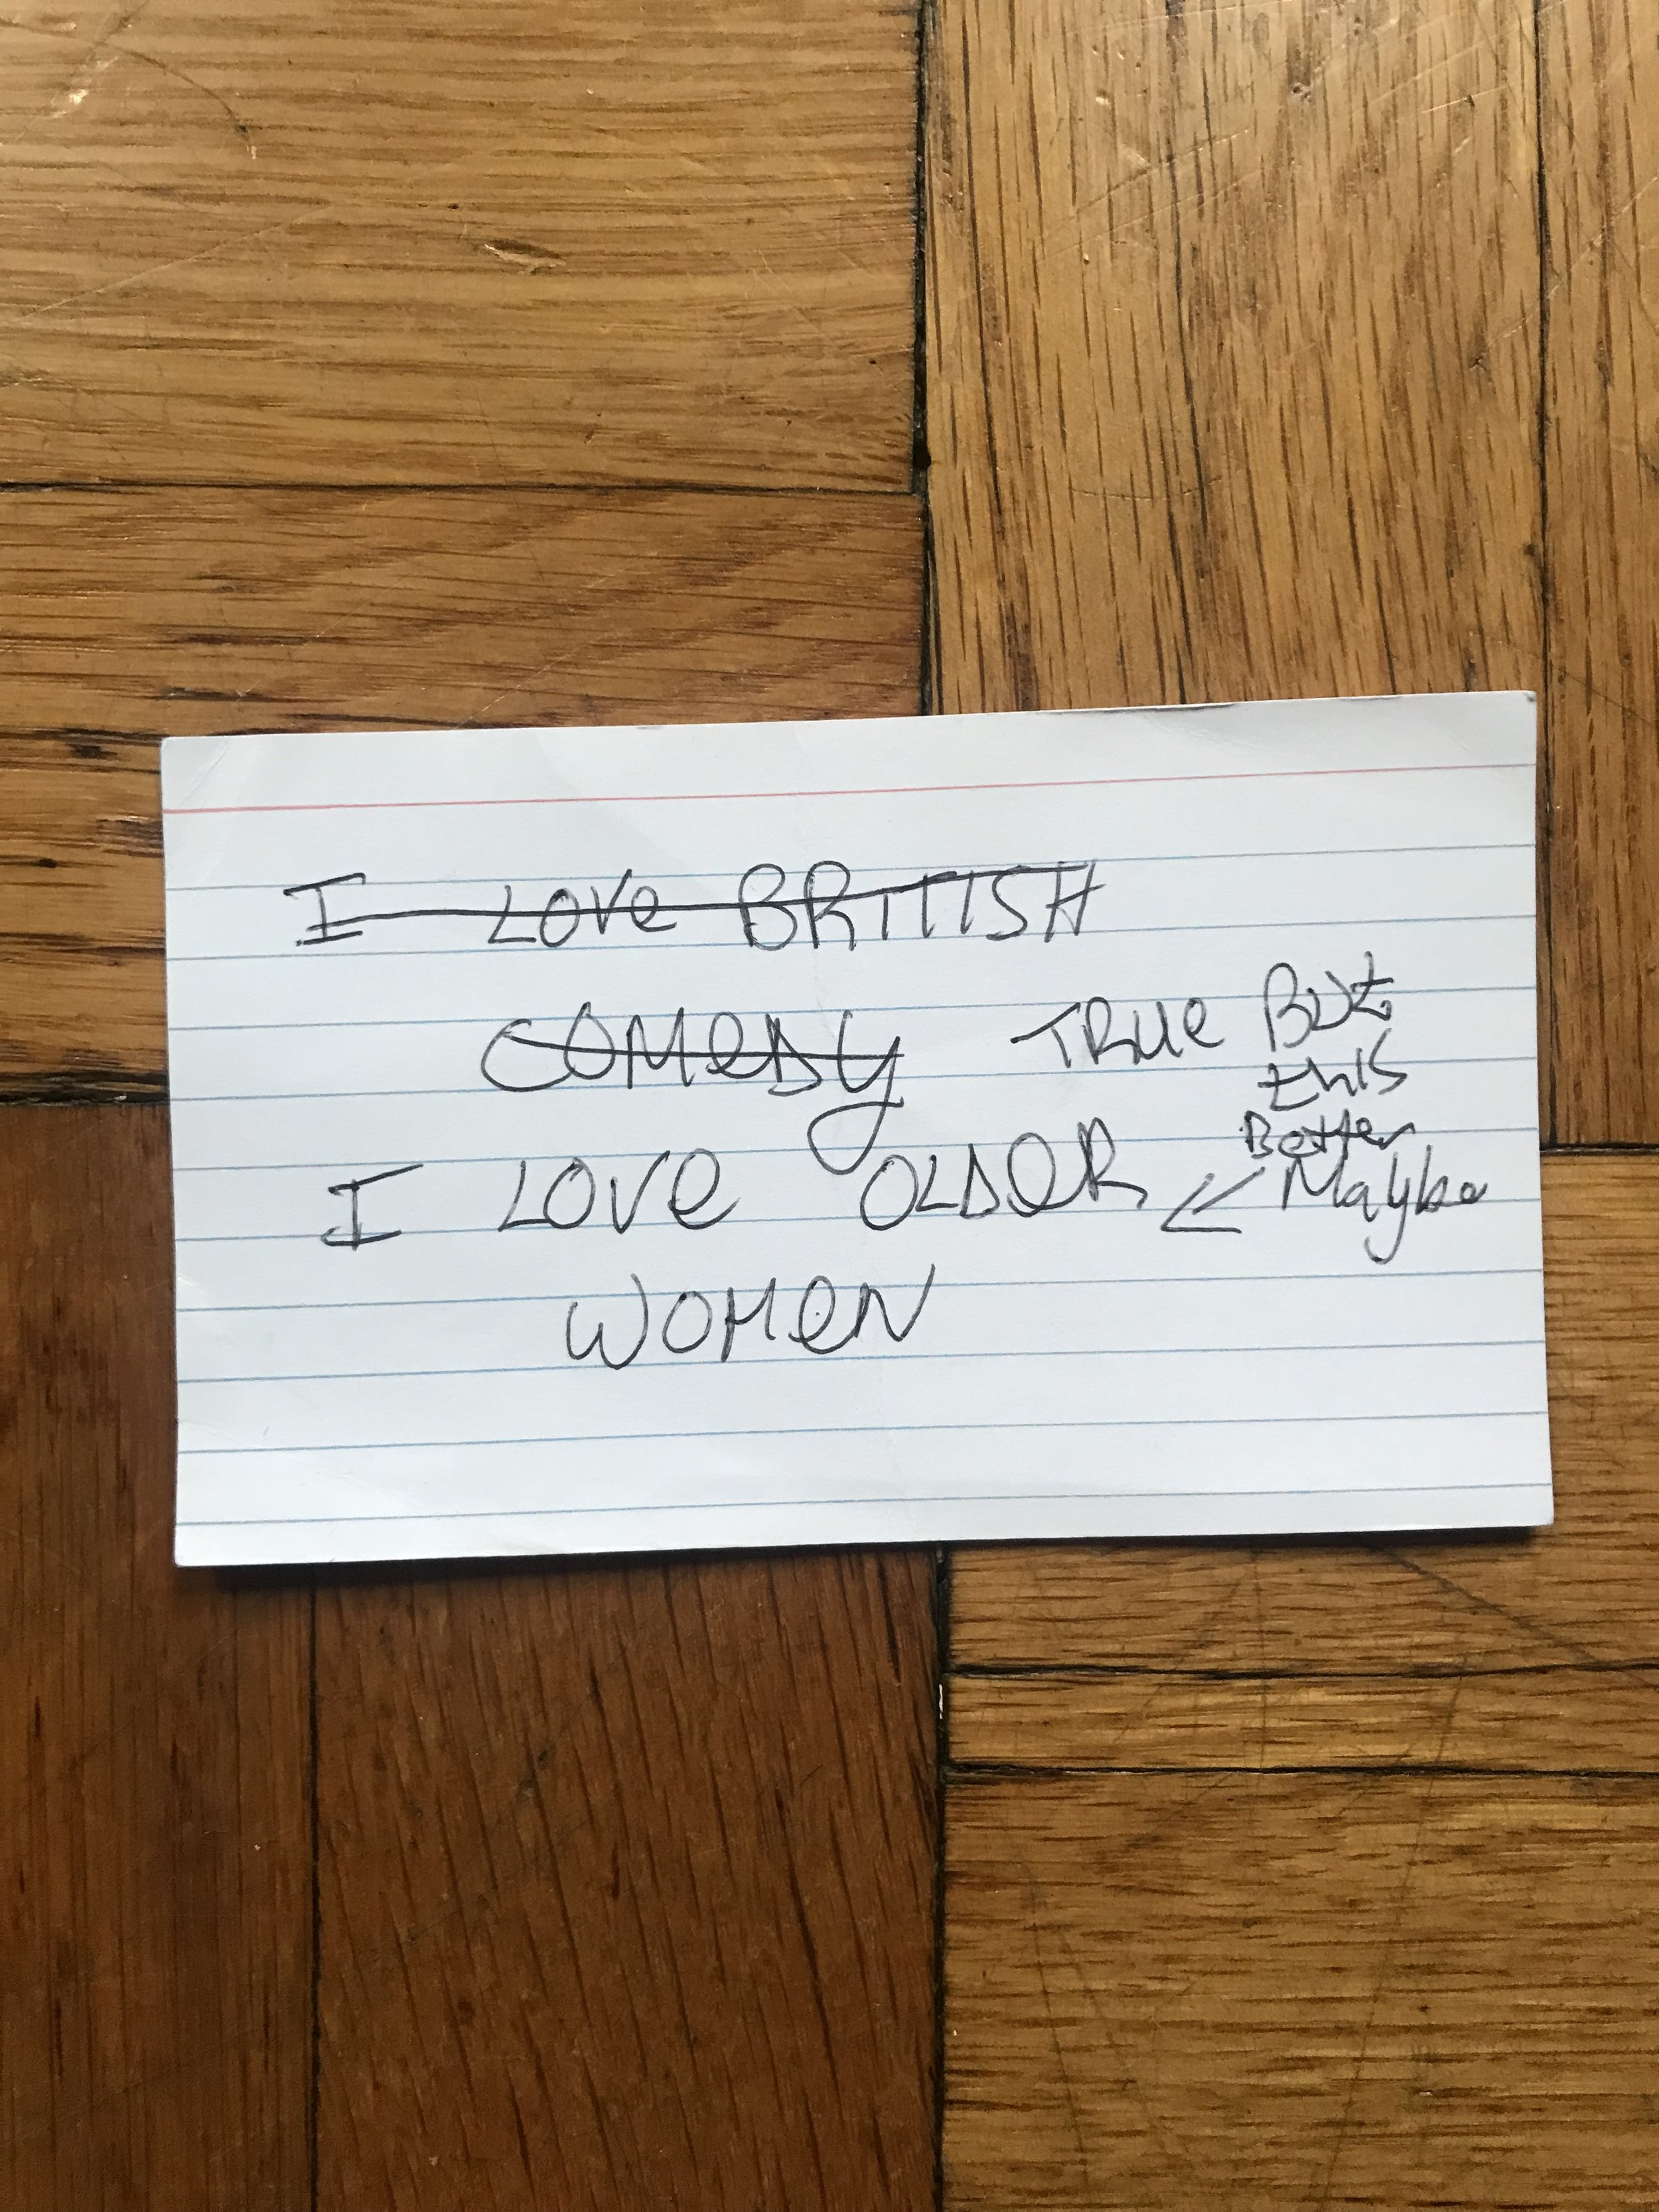 I LOVe BRITISH
COMeDy TRUe But
this
Better
I LOVe OLDeR Maybe
WOMeN